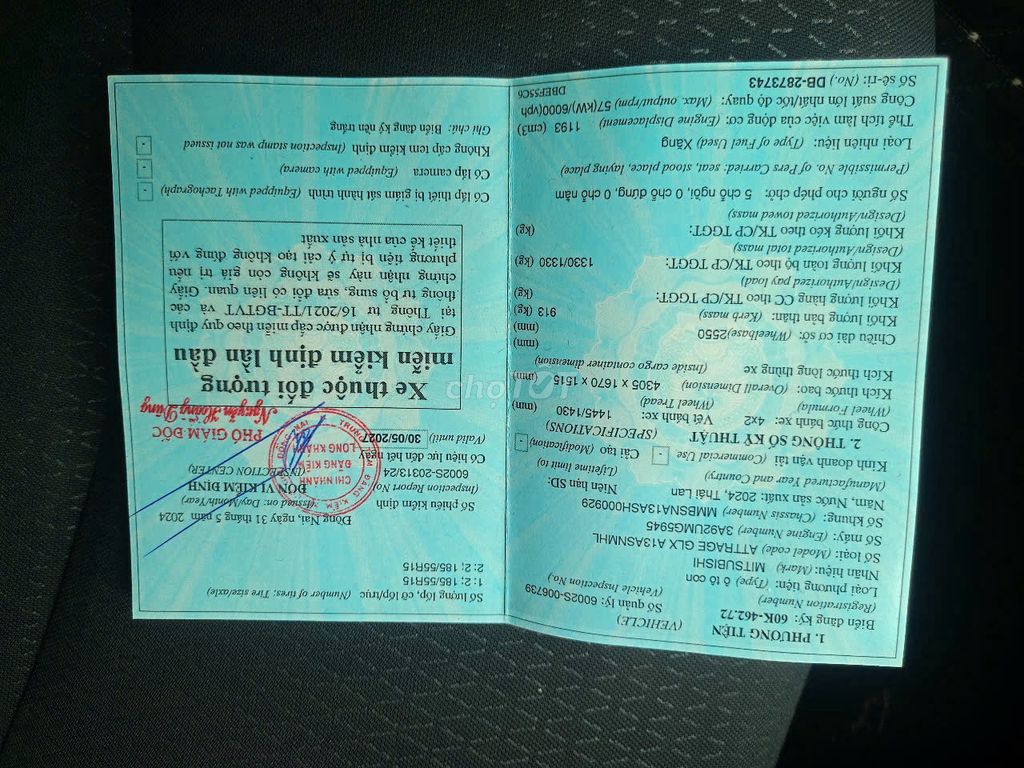 1. PHƯƠNG TIỆN (VEHICLE)
Biển đăng ký: 60K-462.72 Số quản lý: 6002S-006739
(Registration Number) (Vehicle Inspection No.)
Loại phương tiện: (Type) ô tô con
Nhãn hiệu: (Mark) MITSUBISHI
Số loại: (Model code) ATTRAGE GLX A13ASNMHL
Số máy: (Engine Number) 3A92UMG5945
Số khung: (Chassis Number) MMBSNA13ASH000929
Năm, Nước sản xuất: 2024, Thái Lan Niên hạn SD:
(Manufactured Year and Country) (Lifetime limit to)
Kinh doanh vận tải (Commercial Use) - Cải tạo (Modification) -
2. THÔNG SỐ KỸ THUẬT (SPECIFICATIONS)
Công thức bánh xe: 4x2 Vết bánh xe: 1445/1430 (mm)
(Wheel Formula) (Wheel Tread)
Kích thước bao: (Overall Dimension) 4305 x 1670 x 1515 (mm)
Kích thước lòng thùng xe (Inside cargo container dimension)
(mm)
Chiều dài cơ sở: (Wheelbase) 2550 (mm)
Khối lượng bản thân: (Kerb mass) 913 (kg)
Khối lượng hàng CC theo TK/CP TGGT: (kg)
(Design/Authorized pay load)
Khối lượng toàn bộ theo TK/CP TGGT: 1330/1330 (kg)
(Design/Authorized total mass)
Khối lượng kéo theo TK/CP TGGT: (kg)
(Design/Authorized towed mass)
Số người cho phép chở: 5 chỗ ngồi, 0 chỗ đứng, 0 chỗ nằm
(Permissible No. of Pers Carried: seat, stood place, laying place)
Loại nhiên liệu: (Type of Fuel Used) Xăng
Thể tích làm việc của động cơ: (Engine Displacement) 1193 (cm3)
Công suất lớn nhất/tốc độ quay: (Max. output/rpm) 57(kW)/6000(vph
Số sê-ri: (No.) DB-2873743 DBEF55C6
Số lượng lốp, cỡ lốp/trục (Number of tires; Tire size/axle)
1: 2; 185/55R15
2: 2; 185/55R15
Số phiếu kiểm định
(Inspection Report No)
6002S-20313/24
Có hiệu lực đến hết ngày
(Valid until) 30/05/2027
Đồng Nai, ngày 31 tháng 5 năm 2024
(Issued on: Day/Month/Year)
ĐƠN VỊ KIỂM ĐỊNH
(INSPECTION CENTER)
CHI NHÁNH
ĐĂNG KIỂM
LONG KHÁNH
PHÓ GIÁM ĐỐC
Nguyễn Hoàng Dũng
Xe thuộc đối tượng
miễn kiểm định lần đầu
Giấy chứng nhận được cấp miễn theo quy định
tại Thông tư 16/2021/TT-BGTVT và các
thông tư bổ sung, sửa đổi có liên quan. Giấy
chứng nhận này sẽ không còn giá trị nếu
phương tiện bị tự ý cải tạo không đúng với
thiết kế của nhà sản xuất
Có lắp thiết bị giám sát hành trình (Equipped with Tachograph) -
Có lắp camera (Equipped with camera) -
Không cấp tem kiểm định (Inspection stamp was not issued -
Ghi chú: Biển đăng ký nền trắng
chợTỐT